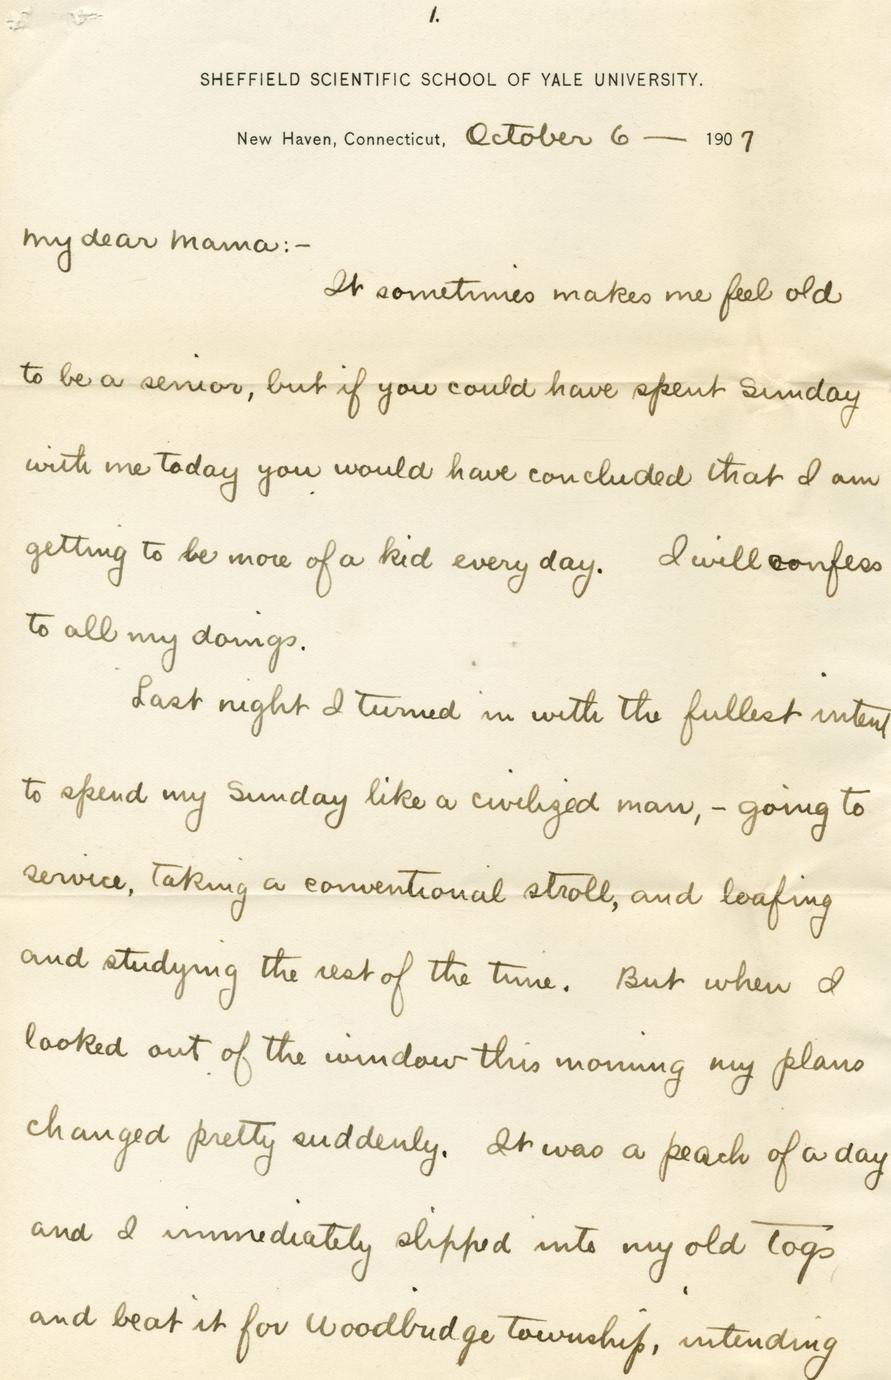 1.
SHEFFIELD SCIENTIFIC SCHOOL OF YALE UNIVERSITY.
New Haven, Connecticut, October 6 — 1907
My dear Mama:-
It sometimes makes me feel old
to be a senior, but if you could have spent Sunday
with me today you would have concluded that I am
getting to be more of a kid every day. I will confess
to all my doings.
Last night I turned in with the fullest intent
to spend my Sunday like a civilized man, - going to
service, taking a conventional stroll, and loafing
and studying the rest of the time. But when I
looked out of the window this morning my plans
changed pretty suddenly. It was a peach of a day
and I immediately slipped into my old togs
and beat it for Woodbridge township, intending